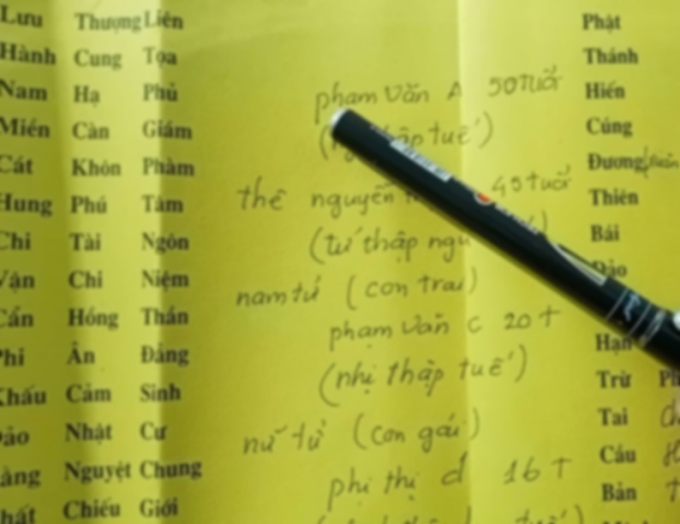 Lưu Thượng Liên
Hành Cung Tọa
Nam Hạ Phủ
Miền Càn Giám
Cát Khôn Phàm
Hung Phú Tâm
Chi Tài Ngôn
Vận Chi Niệm
Cẩn Hồng Thần
Phi Ân Đảng
Khấu Cảm Sinh
Nhật Cư
Nguyệt Chung
Chiếu Giới
phạm văn A 50 tuổi
thập tuế)
thê nguyễn 45 tuổi
(tứ thập ngũ
nam tử (con trai)
phạm văn c 20 T
(nhị thập tuế)
nữ tử (con gái)
phị thị d 16 T
Phật
Thánh
Hiến
Cúng
Đương
Thiên
Bái
Đảo
Hạn
Trừ
Tai
Cầu
Bản